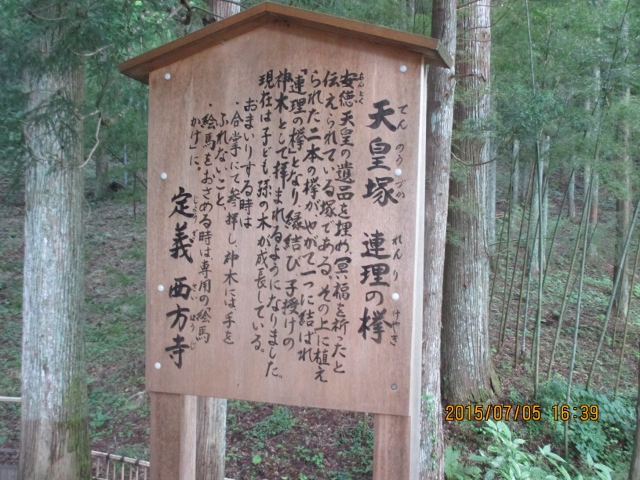 天皇塚　連理の欅
てんのうづか　れんり　けやき
安徳天皇の遺品を埋め、冥福を祈ったと
あんとく
伝えられている塚である。その上に植え
られた二本の欅が、やがて一つに結ばれ
「連理の欅」となり、縁結び、子授けの
神木として拝まれるようになりました。
現在は子ども、孫の木が成長している。
おまいりする時は
・合掌にて参拝し、神木には手を
ふれないこと
・絵馬をおさめる時は専用の絵馬
かけに。
定義　西方寺
じょうぎ　さいほうじ
2015/07/05 16:39